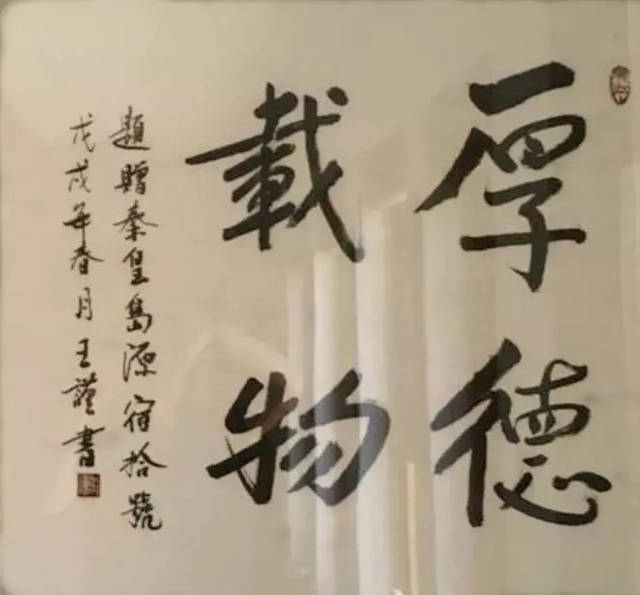 厚德
載物
題贈秦皇島源宿拾號
戊戌年春月王謹書